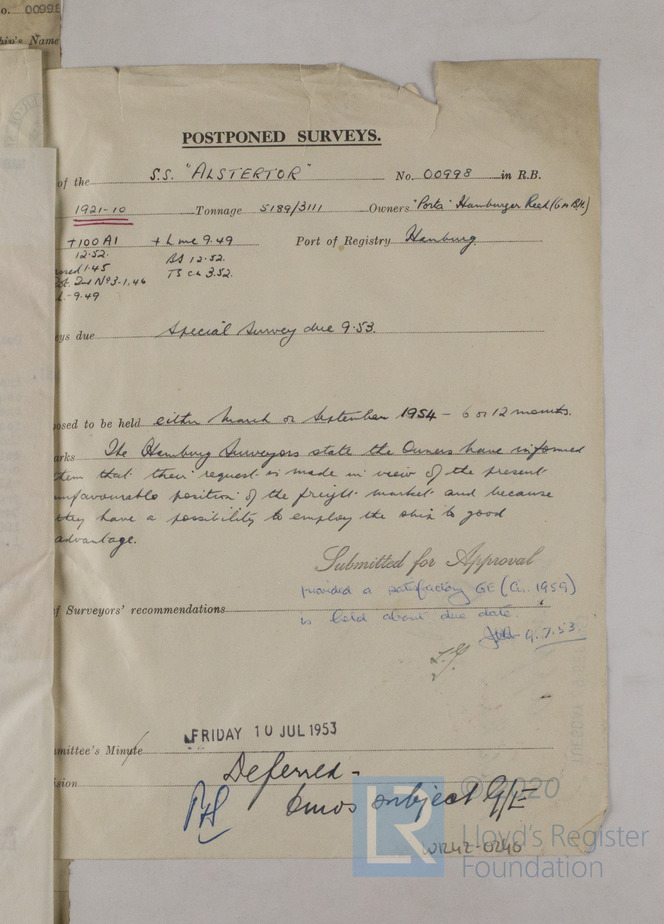 o. 00998
hip's Name
POSTPONED SURVEYS.
of the S.S. "ALSTERTOR" No. 00998 in R.B.
1921-10 Tonnage 5189/3111 Owners "Porta" Hamburger Reed (GmBH.)
+100A1 + LMC 9.49 Port of Registry Hamburg
12.52. BS 12.52.
1.45 TS CL 3.52.
2nd No3-1,46
-9.49
eys due Special Survey due 9.53.
osed to be held either March or September 1954 - 6 or 12 months.
arks The Hamburg Surveyors state the Owners have informed
them that their request is made in view of the present
unfavourable position of the freight market and because
they have a possibility to employ the ship to good
advantage.
Submitted for Approval
provided a satisfactory GE (Cir. 1959)
f Surveyors' recommendations
is held about due date.
9.7.53
mmittee's Minute FRIDAY 10 JUL 1953
ision Deferred -
6mos subject G/E
©2020
LR
Lloyd's Register
Foundation
W1242-0240